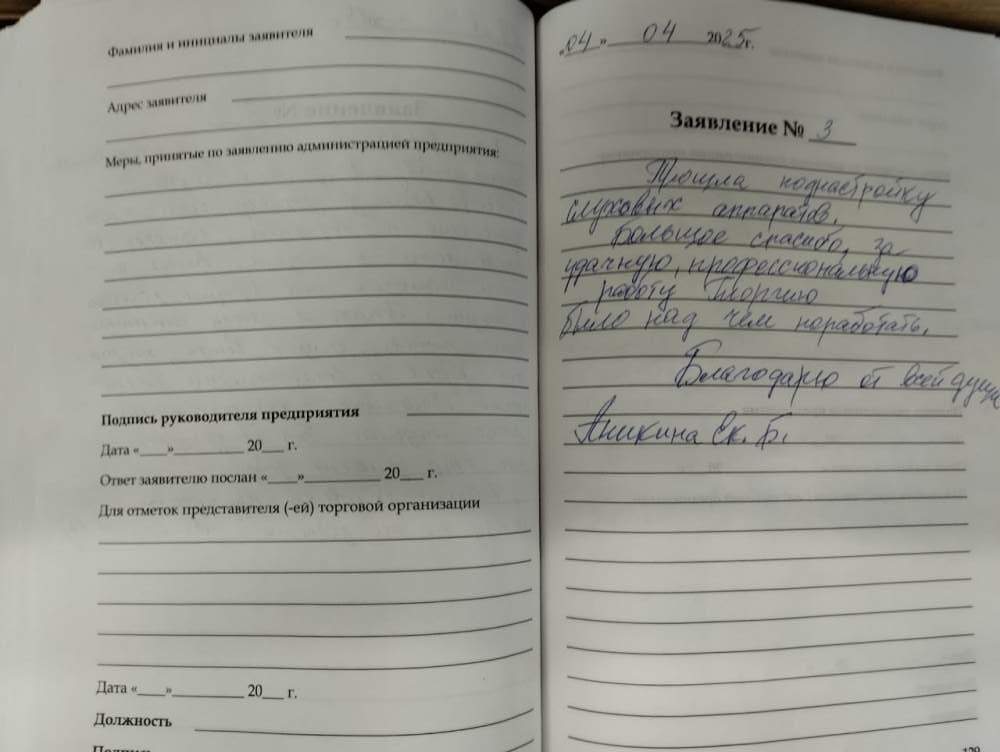 Фамилия и инициалы заявителя
Адрес заявителя
Меры, принятые по заявлению администрацией предприятия:
Подпись руководителя предприятия
Дата «___»_________ 20___ г.
Ответ заявителю послан «___»_________ 20___ г.
Для отметок представителя (-ей) торговой организации
Дата «___»_________ 20___ г.
Должность
„04 " 04 2025г.
Заявление № 3
Прошла поднастройку
слуховых аппаратов.
Большое спасибо, за
удачную, профессиональную
работу Георгию
Было над чем поработать.
Благодарю от всей души
Аникина Ек. Б.